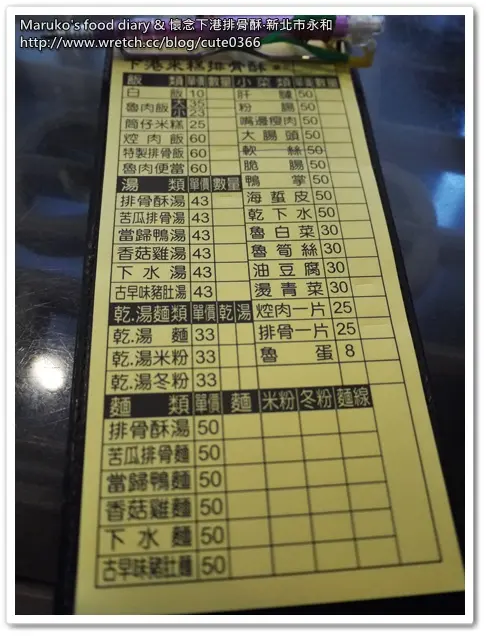 Maruko's food diary & 懷念下港排骨酥‧新北市永和
http://www.wretch.cc/blog/cute0366
下港米糕排骨酥
飯類 單價 數量 小菜類 單價 數量
白飯 10 肝連 50
魯肉飯 大 35 小 23 粉腸 50
筒仔米糕 25 嘴邊瘦肉 50
焢肉飯 60 大腸頭 50
特製排骨飯 60 軟絲 50
魯肉便當 60 脆腸 50
湯類 單價 數量 鴨掌 50
排骨酥湯 43 海蜇皮 50
苦瓜排骨湯 43 乾下水 50
當歸鴨湯 43 魯白菜 30
香菇雞湯 43 魯筍絲 30
下水湯 43 油豆腐 30
古早味豬肚湯 43 燙青菜 30
乾.湯麵類 單價 乾 湯 焢肉一片 25
乾.湯麵 33 排骨一片 25
乾.湯米粉 33 魯蛋 8
乾.湯冬粉 33
麵類 單價 麵 米粉 冬粉 麵線
排骨酥湯 50
苦瓜排骨麵 50
當歸鴨麵 50
香菇雞麵 50
下水麵 50
古早味豬肚麵 50